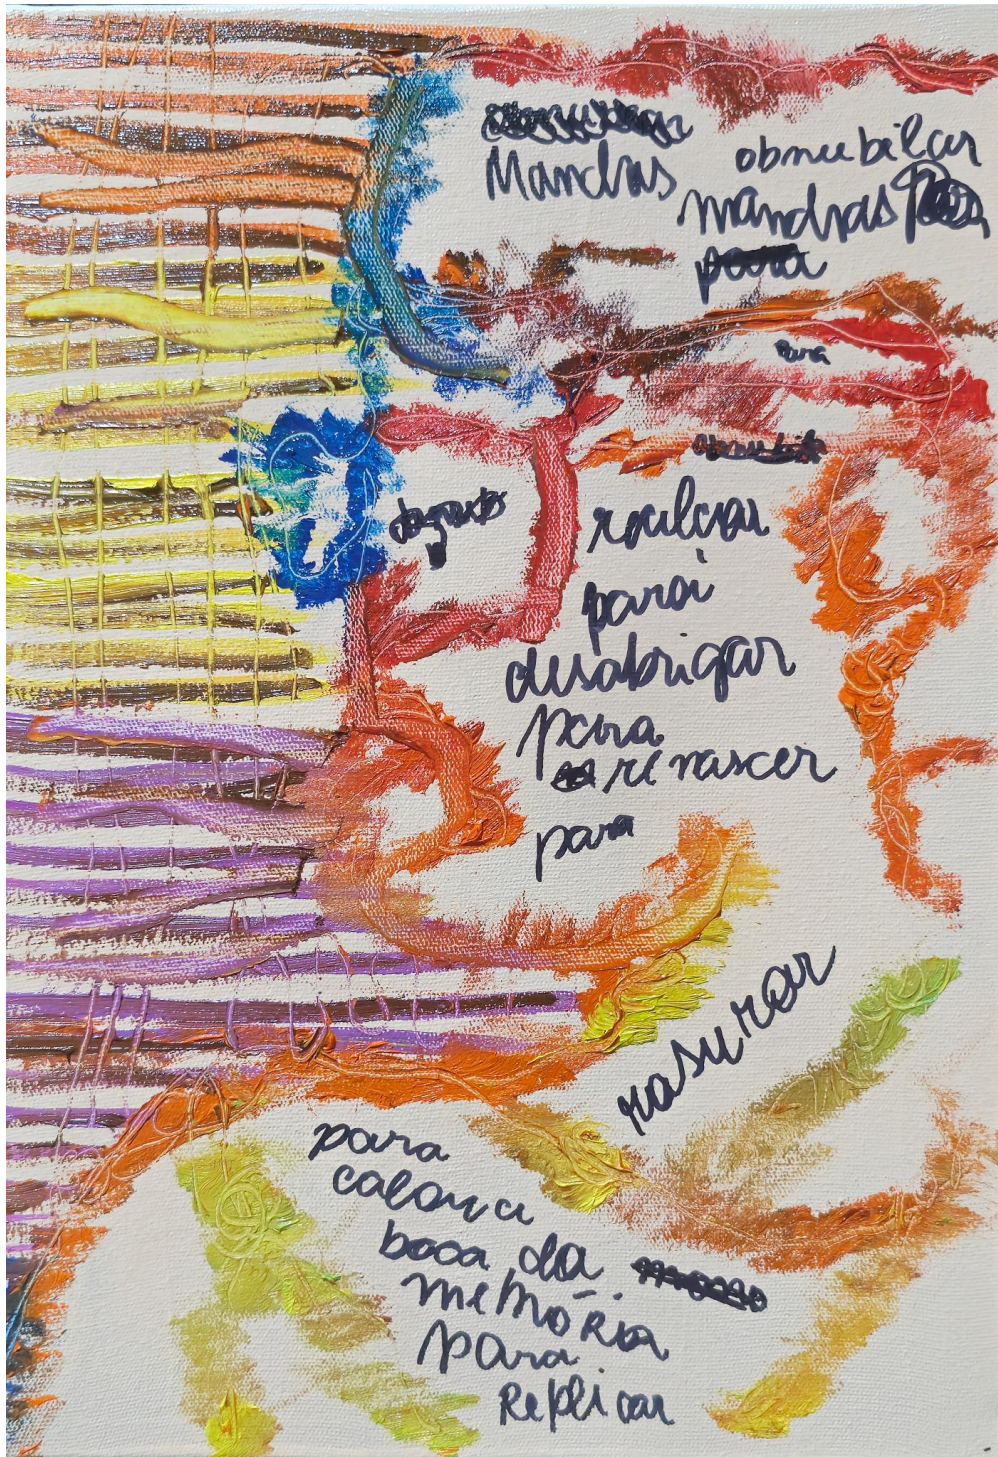 Mandras
obnubilar
mandras
para
para
realçar
para
desabrigar
para
renascer
para
rasurar
para
calar a
boca da
memória
para
Replicar